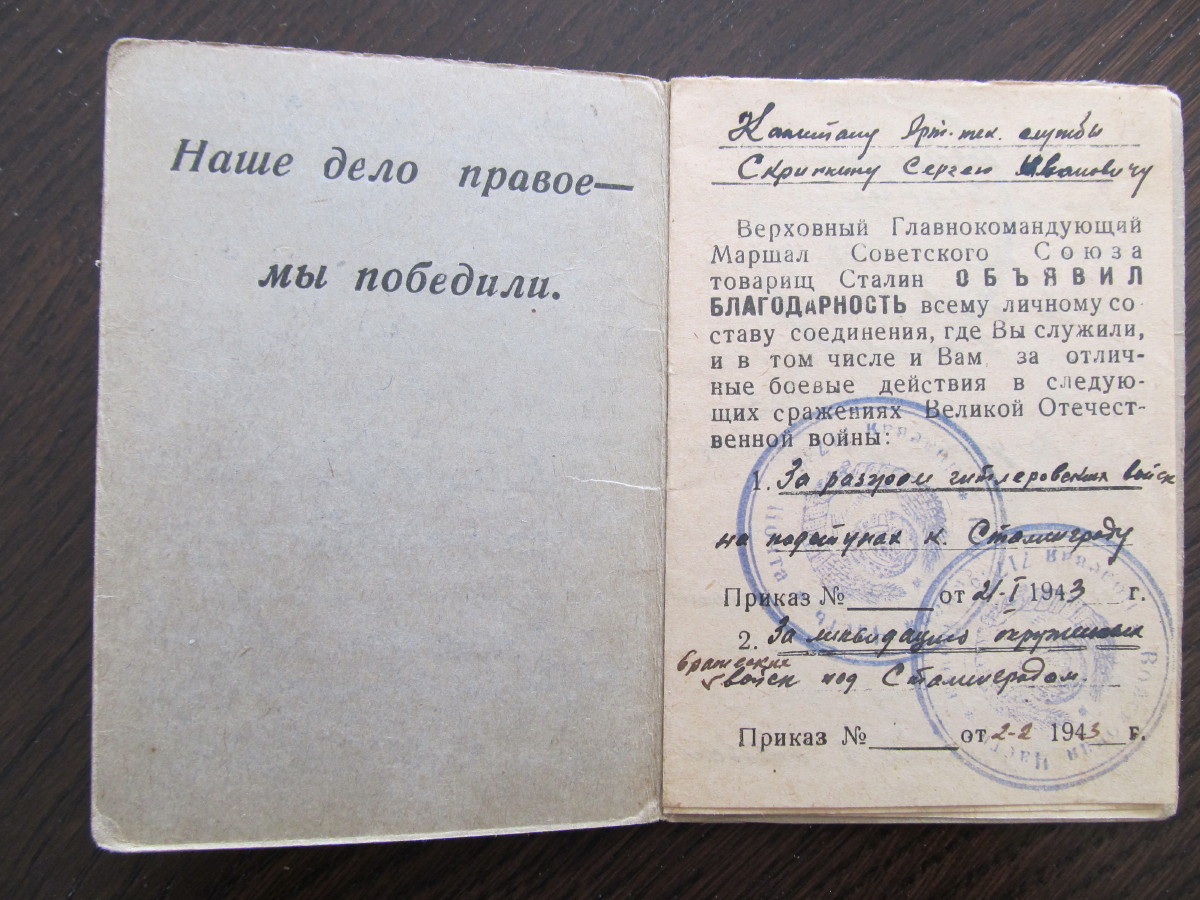 Наше дело правое—
мы победили.
Капитану Арт-тех. службы
Скрипкину Сергею Ивановичу
Верховный Главнокомандующий
Маршал Советского Союза
товарищ Сталин ОБЪЯВИЛ
БЛАГОДАРНОСТЬ всему личному со
ставу соединения, где Вы служили,
и в том числе и Вам за отлич-
ные боевые действия в следую-
щих сражениях Великой Отечест-
венной войны:
1. За разгром гитлеровских войск
на подступах к. Сталинграду
Приказ № от 21-I 1943 г.
2. За ликвидацию окруженных
вражеских
войск под Сталинградом.
Приказ № от 2-2 1943 г.